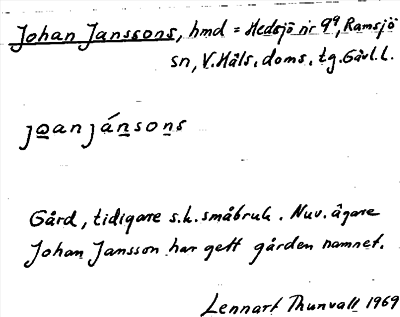 Johan Janssons, hmd = Hedsjö nr 9⁹, Ramsjö
sn, V. Häls. doms. tg. Gävl. l.
joanjánsons
Gård, tidigare s.k. småbruk. Nuv. ägare
Johan Jansson har gett gården namnet.
Lennart Thunvall 1969